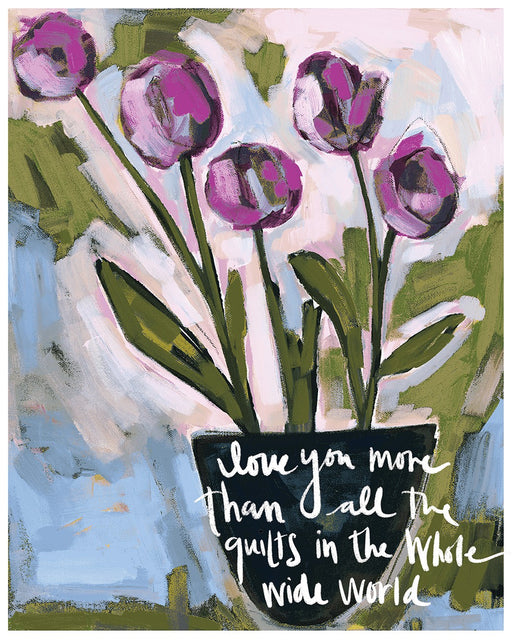 love you more
than all the
quilts in the Whole
wide World